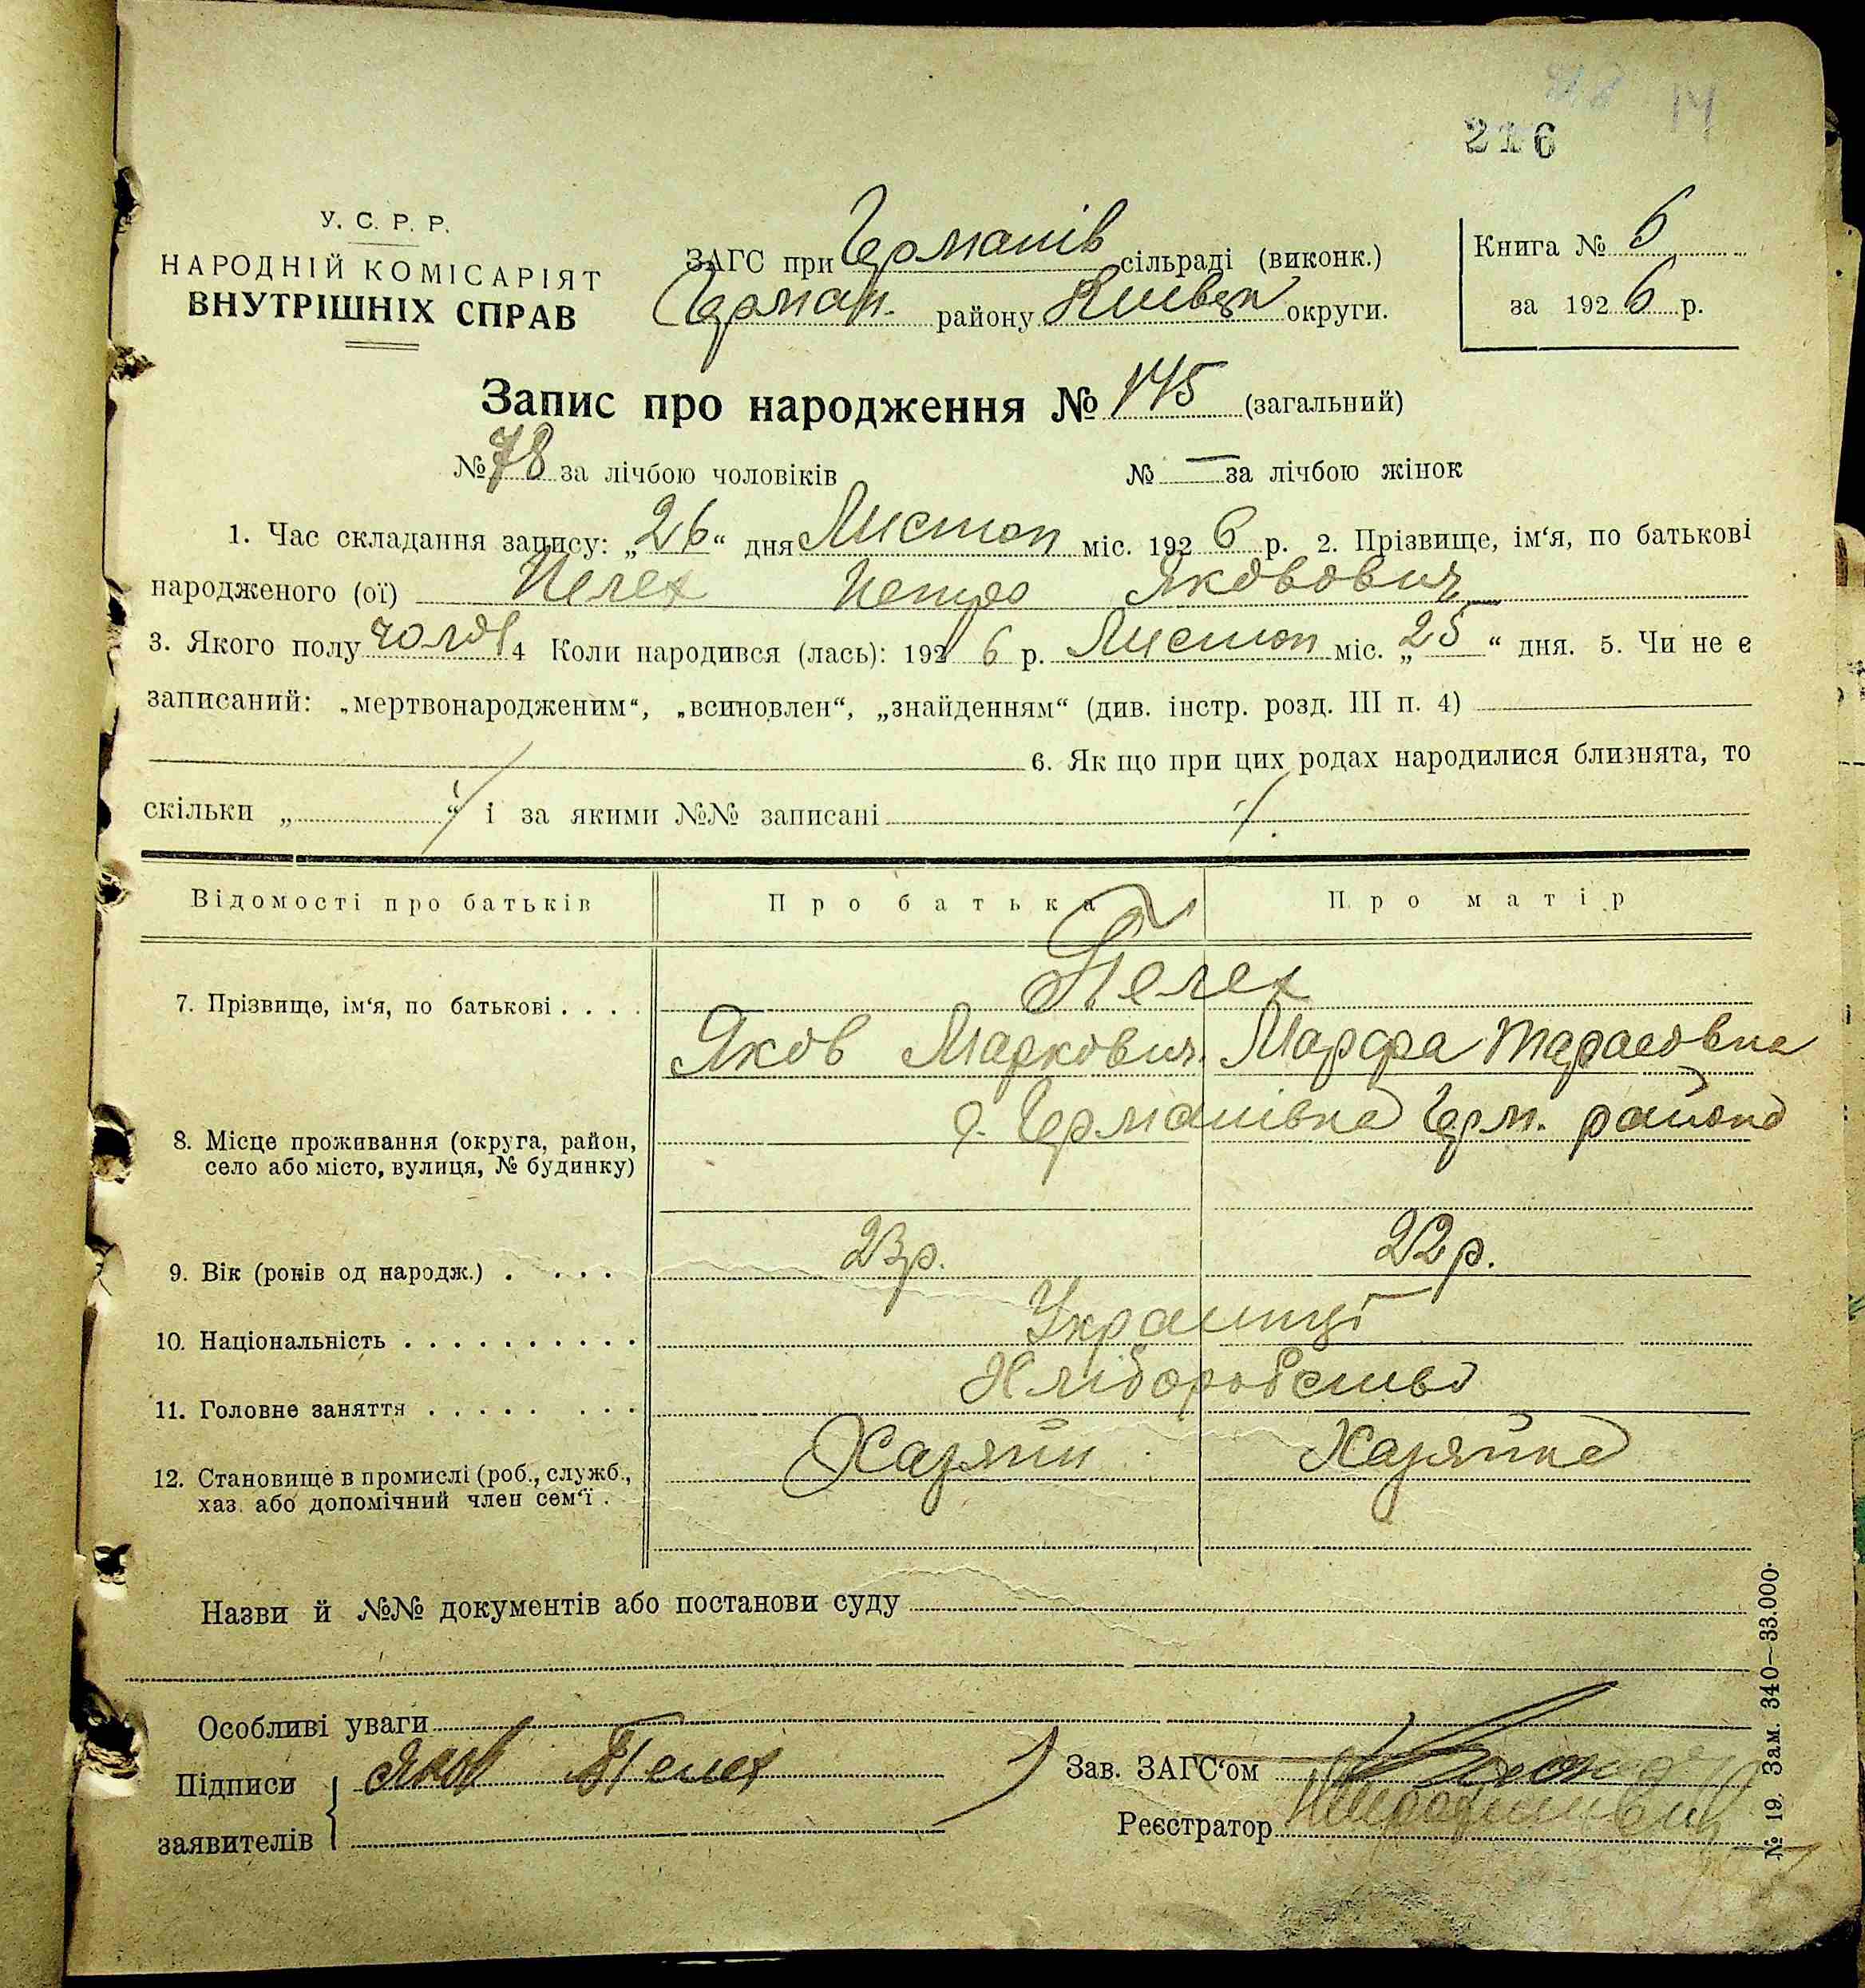 14
216
У. С. Р. Р.
НАРОДНІЙ КОМІСАРІЯТ
ВНУТРІШНІХ СПРАВ
ЗАГС при Германів сільраді (виконк.)
Герман. району Київск округи.
Книга № 6
за 1926 р.
Запис про народження № 145 (загальний)
№ 78 за лічбою чоловіків № — за лічбою жінок
1. Час складання запису: „26“ дня Листоп міс. 1926 р. 2. Прізвище, ім‘я, по батькові
народженого (ої) Пелех Петро Яковович
3. Якого полу чолов 4 Коли народився (лась): 1926 р. Листоп міс. „25“ дня. 5. Чи не є
записаний: „мертвонародженим“, „всиновлен“, „знайденням“ (див. інстр. розд. III п. 4)
6. Як що при цих родах народилися близнята, то
скільки „ “ і за якими №№ записані
Відомості про батьків Про батька Про матір
Пелех
7. Прізвище, ім‘я, по батькові . . . .
Яков Маркович Марфа Тарасовна
с. Германівка Герм. района
8. Місце проживання (округа, район,
село або місто, вулиця, № будинку)
9. Вік (років од народж.) . . . . 23р. 22р.
10. Національність . . . . . . . . . . Українці
11. Головне заняття . . . . . . . . Хліборобство
12. Становище в промислі (роб., служб., Хазяїн Хазяйка
хаз. або допомічний член сем‘ї .
Назви й №№ документів або постанови суду
Особливі уваги
Підписи Яков Пелех Зав. ЗАГС‘ом
заявителів Реєстратор
№ 19. Зам. 340—33.000.